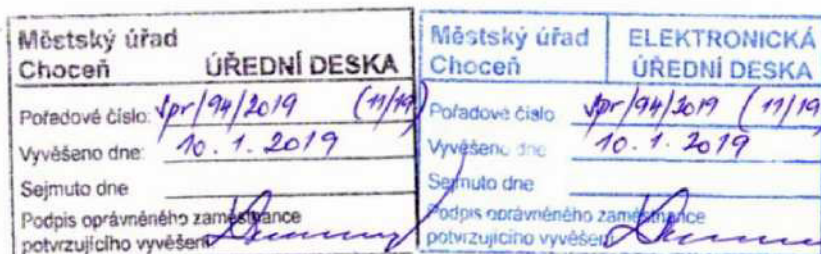 Městský úřad
Choceň ÚŘEDNÍ DESKA
Pořadové číslo: Vpr/94/2019 (11/19)
Vyvěšeno dne: 10. 1. 2019
Sejmuto dne
Podpis oprávněného zaměstnance
potvrzujícího vyvěšení
Městský úřad
Choceň
ELEKTRONICKÁ
ÚŘEDNÍ DESKA
Pořadové číslo Vpr/94/2019 (11/19
Vyvěšeno dne 10. 1. 2019
Sejmuto dne
Podpis oprávněného zaměstnance
potvrzujícího vyvěšení